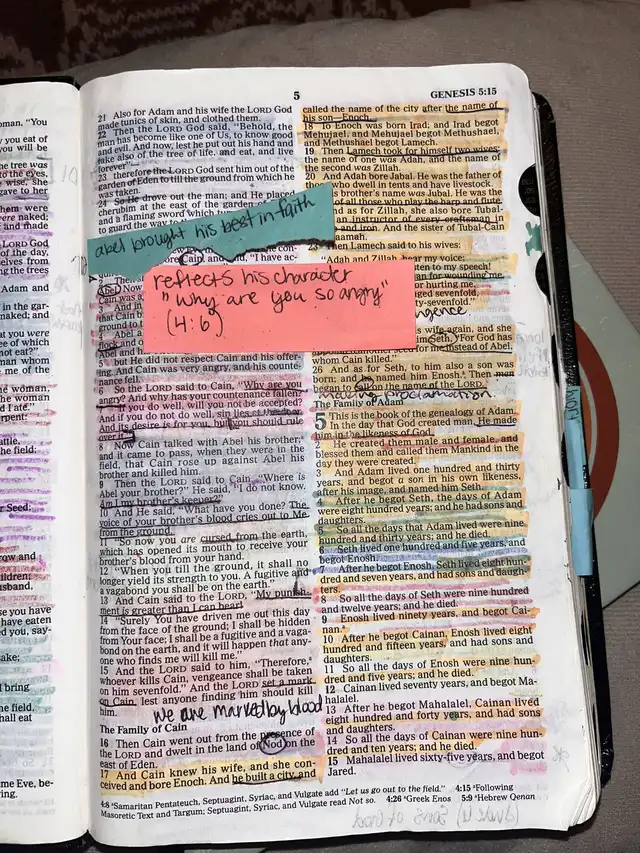 5
GENESIS 5:15
21 Also for Adam and his wife the LORD God
made tunics of skin, and clothed them.
22 Then the LORD God said, "Behold, the
man has become like one of Us, to know good
and evil. And now, lest he put out his hand and
take also of the tree of life, and eat, and live
forever"—
23 therefore the LORD God sent him out of the
garden of Eden to till the ground from which he
was taken.
24 So He drove out the man; and He placed
cherubim at the east of the garden of
and a flaming sword which
to guard the way to
abel brought his best in faith
reflects his character
"Why are you so angry"
(4:6)
5 but He did not respect Cain and his offer-
ing. And Cain was very angry, and his counte-
nance fell.
6 So the LORD said to Cain, "Why are you
angry? And why has your countenance fallen?
7 If you do well, will you not be accepted?
And if you do not do well, sin lies at the door.
And its desire is for you, but you should rule
over it."
8 Now Cain talked with Abel his brother;
and it came to pass, when they were in the
field, that Cain rose up against Abel his
brother and killed him.
9 Then the LORD said to Cain, "Where is
Abel your brother?" He said, "I do not know.
Am I my brother's keeper?"
10 And He said, "What have you done? The
voice of your brother's blood cries out to Me
from the ground.
11 "So now you are cursed from the earth,
which has opened its mouth to receive your
brother's blood from your hand.
12 "When you till the ground, it shall no
longer yield its strength to you. A fugitive and
a vagabond you shall be on the earth."
13 And Cain said to the LORD, "My punish-
ment is greater than I can bear!
14 "Surely You have driven me out this day
from the face of the ground; I shall be hidden
from Your face; I shall be a fugitive and a vaga-
bond on the earth, and it will happen that any-
one who finds me will kill me."
15 And the LORD said to him, "Therefore,
whoever kills Cain, vengeance shall be taken
on him sevenfold." And the LORD set a mark
on Cain, lest anyone finding him should kill
him.
we are marked by blood
The Family of Cain
16 Then Cain went out from the presence of
the LORD and dwelt in the land of Nod on the
east of Eden.
17 And Cain knew his wife, and she con-
ceived and bore Enoch. And he built a city, and
called the name of the city after the name of
his son—Enoch.
18 To Enoch was born Irad; and Irad begot
Mehujael, and Mehujael begot Methushael,
and Methushael begot Lamech.
19 Then Lamech took for himself two wives:
the name of one was Adah, and the name of
the second was Zillah.
20 And Adah bore Jabal. He was the father of
those who dwell in tents and have livestock.
brother's name was Jubal. He was the
of all those who play the harp and flute.
nd as for Zillah, she also bore Tubal-
an instructor of every craftsman in
and iron. And the sister of Tubal-Cain
aamah.
23 Then Lamech said to his wives:
"Adah and Zillah, hear my voice;
ten to my speech!
an for wounding me,
for hurting me.
ged sevenfold,
ty-sevenfold."
wife again, and she
Seth, "For God has
for me instead of Abel,
whom Cain killed."
26 And as for Seth, to him also a son was
born; and he named him Enosh. Then men
began to call on the name of the LORD.
making proclamation
The Family of Adam
5 This is the book of the genealogy of Adam.
In the day that God created man, He made
him in the likeness of God.
2 He created them male and female, and
blessed them and called them Mankind in the
day they were created.
3 And Adam lived one hundred and thirty
years, and begot a son in his own likeness,
after his image, and named him Seth.
4 After he begot Seth, the days of Adam
were eight hundred years; and he had sons and
daughters.
5 So all the days that Adam lived were nine
hundred and thirty years; and he died.
6 Seth lived one hundred and five years, and
begot Enosh.
7 After he begot Enosh, Seth lived eight hun-
dred and seven years, and had sons and daugh-
ters.
8 So all the days of Seth were nine hundred
and twelve years; and he died.
9 Enosh lived ninety years, and begot Cai-
nan.
10 After he begot Cainan, Enosh lived eight
hundred and fifteen years, and had sons and
daughters.
11 So all the days of Enosh were nine hun-
dred and five years; and he died.
12 Cainan lived seventy years, and begot Ma-
halalel.
13 After he begot Mahalalel, Cainan lived
eight hundred and forty years, and had sons
and daughters.
14 So all the days of Cainan were nine hun-
dred and ten years; and he died.
15 Mahalalel lived sixty-five years, and begot
Jared.
4:8 Samaritan Pentateuch, Septuagint, Syriac, and Vulgate add "Let us go out to the field." 4:15 Following
Masoretic Text and Targum; Septuagint, Syriac, and Vulgate read Not so. 4:26 Greek Enos 5:9 Hebrew Qenan